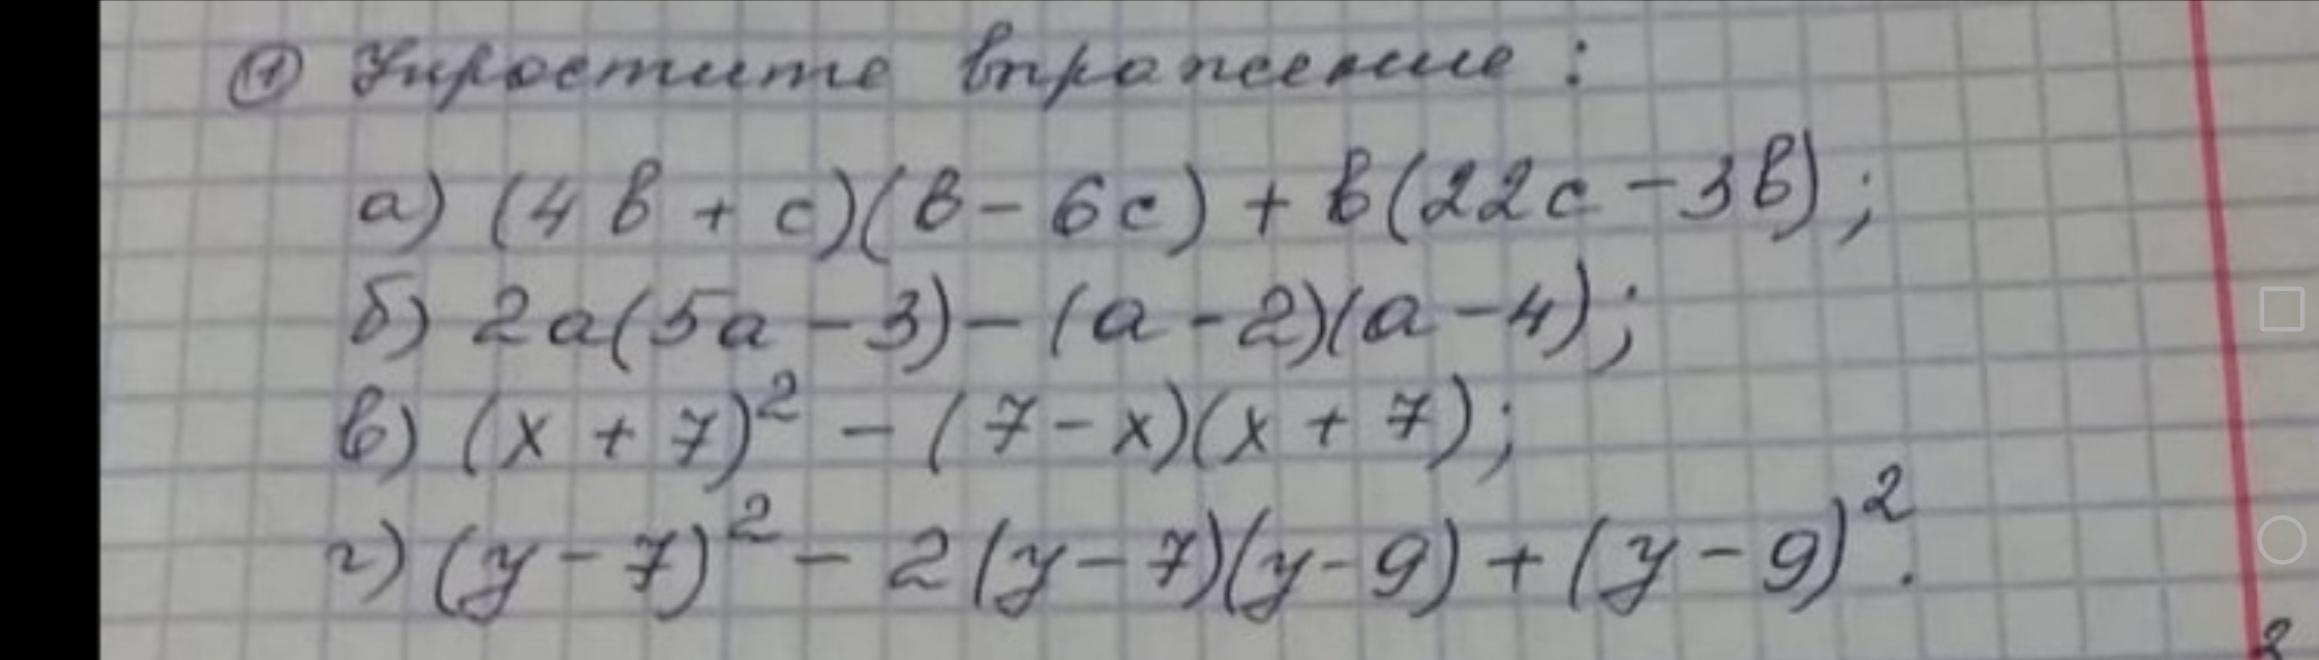 ① Упростите вправжение:
а) (4в + с)(в - 6с) + в(22с - 3в);
б) 2а(5а - 3) - (а - 2)(а - 4);
в) (х + 7)² - (7 - х)(х + 7);
г) (у - 7)² - 2(у - 7)(у - 9) + (у - 9)².
2